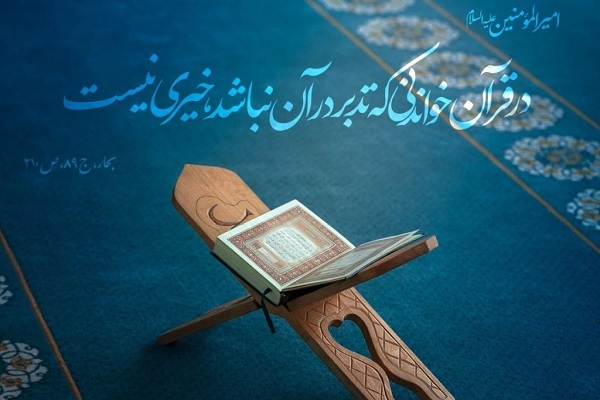 امیرالمؤمنین علیه‌السلام
در قرآن خواندنی که تدبر در آن نباشد، خیری نیست
بحار، ج ۸۹، ص ۲۱۰